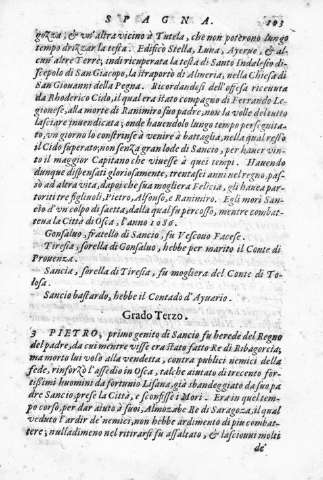 SPAGNA. 103
gozza; & vn'altra vicino à Tutela, che non poterono lungo
tempo drizzar la testa. Edificò Stella, Luna, Ayerpo, & al-
cun'altre Terre; indi ricuperata la testa di Santo Indalesio di-
scepolo di San Giacopo, la traportò di Almeria, nella Chiesa di
San Giouanni della Pegna. Ricordandosi dell'offesa riceuuta
da Rhoderico Cido, il qual era stato compagno di Ferrando Le-
gionese, alla morte di Ranimiro suo padre, non la volle del tutto
lasciare inuendicata; onde hauendolo lungo tempo persegnita-
to, vn giorno lo constrinse à venire à battaglia, nella qual restò
il Cido superato, non senza gran lode di Sancio, per hauer vin-
to il maggior Capitano che viuesse à quei tempi. Hauendo
dunque dispensati gloriosamente, trentasei anni nel regno, pas-
sò ad altra vita, dapoi che sua mogliera Felicia, gli hauea par-
toriti tre figliuoli, Pietro, Alfonso, e Ranimiro. Egli morì San-
cio d'vn colpo di saetta, dalla qual fu percosso, mentre combat-
tena la Città di Osca, l'anno 1086.
Gonsaluo, fratello di Sancio, fu Vescouo Facese.
Tiresia, sorella di Gonsaluo, hebbe per marito il Conte di
Prouenza.
Sancia, sorella di Tiresia, fu mogliera del Conte di To-
losa.
Sancio bastardo, hebbe il Contado d'Ayuario.
Grado Terzo.
3 PIETRO, primo genito di Sancio fu herede del Regno
del padre, da cui mentre visse era stato fatto Re di Ribagorcia;
ma morto lui volò alla vendetta, contra publici nemici della
fede, rinforzò l'assedio in Osca, tal che aiutato di trecento for-
tissimi huomini da Fortunio Lisana, già sbandeggiato da suo pa-
dre Sancio; prese la Città, e sconfisse i Mori. Era in quel tem-
po corso, per dar aiuto à suoi, Almozabe Re di Saragoza, il qual
veduto l'ardir de' nemici, non hebbe ardimento di pur combat-
tere; nulladimeno nel ritirarsi fu assaltato, & lasciouui molti
de'